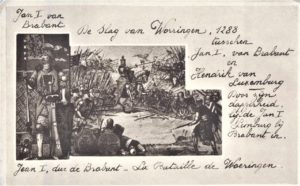 Jan I van
Brabant
De Slag van Woeringen, 1288
tusschen
Jan I, van Brabant
en
Hendrik van
Luxemburg
Door zijn
dapperheid
lijfde Jan I
Limburg bij
Brabant in.
Jean I, duc de Brabant - La Bataille de Woeringen.